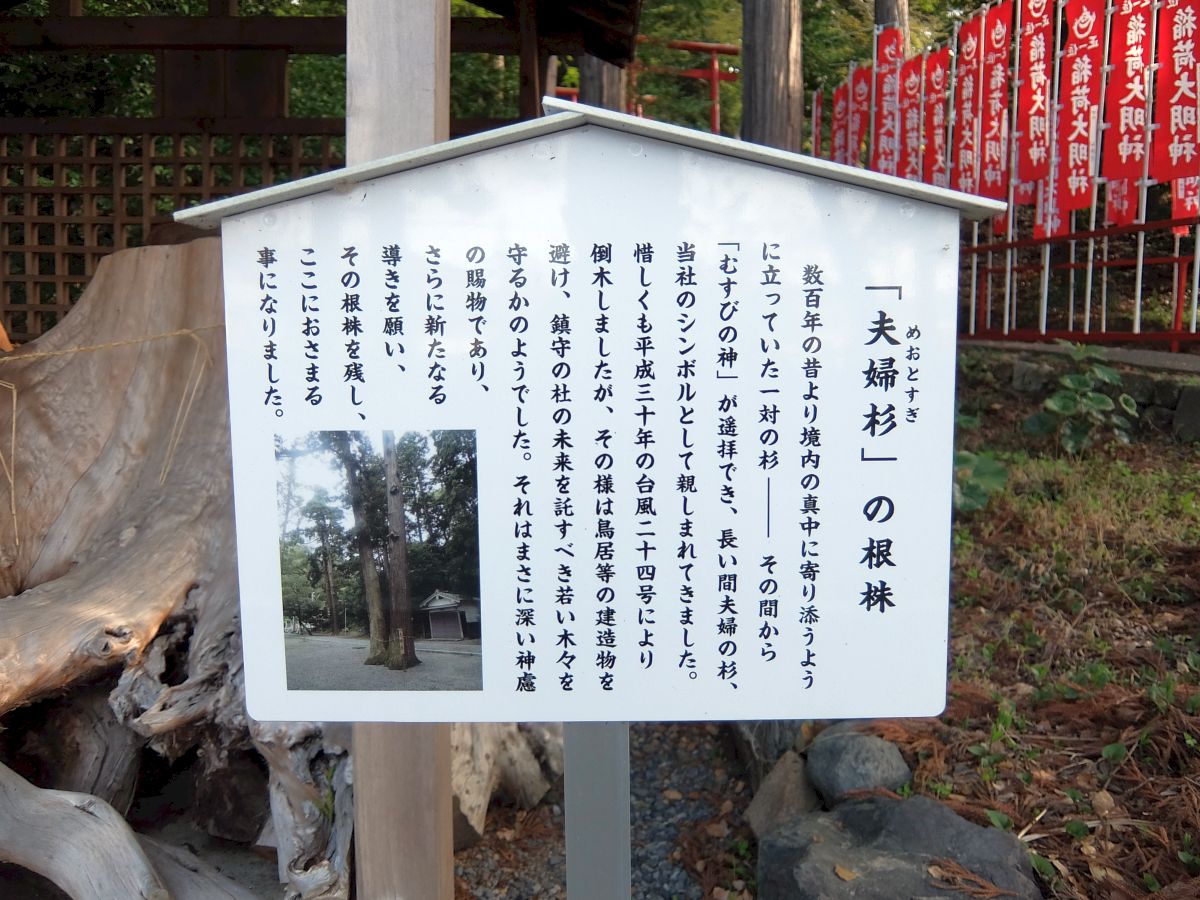 「夫婦杉」の根株
めおとすぎ
数百年の昔より境内の真中に寄り添うよう
に立っていた一対の杉 ―― その間から
「むすびの神」が遥拝でき、長い間夫婦の杉、
当社のシンボルとして親しまれてきました。
惜しくも平成三十年の台風二十四号により
倒木しましたが、その様は鳥居等の建造物を
避け、鎮守の杜の未来を託すべき若い木々を
守るかのようでした。それはまさに深い神慮
の賜物であり、
さらに新たなる
導きを願い、
その根株を残し、
ここにおさまる
事になりました。
正一位 稲荷大明神
正一位 稲荷大明神
正一位 稲荷大明神
正一位 稲荷大明神
稲荷大明神
稲荷大明神